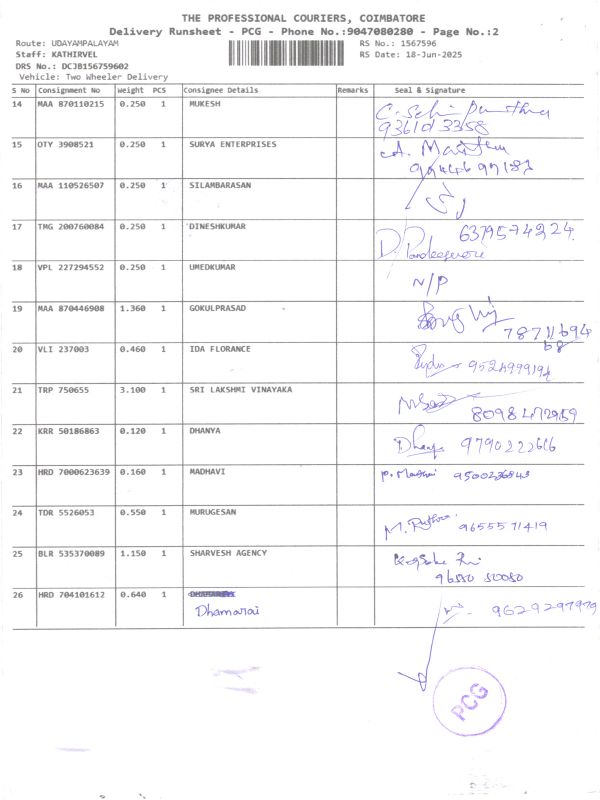 THE PROFESSIONAL COURIERS, COIMBATORE
Delivery Runsheet - PCG - Phone No.:9047080280 - Page No.:2
Route: UDAYAMPALAYAM RS No.: 1567596
Staff: KATHIRVEL RS Date: 18-Jun-2025
DRS No.: DCJB156759602
Vehicle: Two Wheeler Delivery
S No Consignment No Weight PCS Consignee Details Remarks Seal & Signature
14 MAA 870110215 0.250 1 MUKESH
9361d3358
15 OTY 3908521 0.250 1 SURYA ENTERPRISES
16 MAA 110526507 0.250 1 SILAMBARASAN
17 TMG 200760084 0.250 1 DINESHKUMAR 6379574224
18 VPL 227294552 0.250 1 UMEDKUMAR
N/P
19 MAA 870446908 1.360 1 GOKULPRASAD
78711694
68
20 VLI 237003 0.460 1 IDA FLORANCE
9524999194
21 TRP 750655 3.100 1 SRI LAKSHMI VINAYAKA
8098472959
22 KRR 50186863 0.120 1 DHANYA
Dhanya 9790222616
23 HRD 7000623639 0.160 1 MADHAVI P. Madhavi 9500236843
24 TDR 5526053 0.550 1 MURUGESAN
M. 9655571419
25 BLR 535370089 1.150 1 SHARVESH AGENCY
96550 50050
26 HRD 704101612 0.640 1
Dhamarai 9629297979
PCG
..2